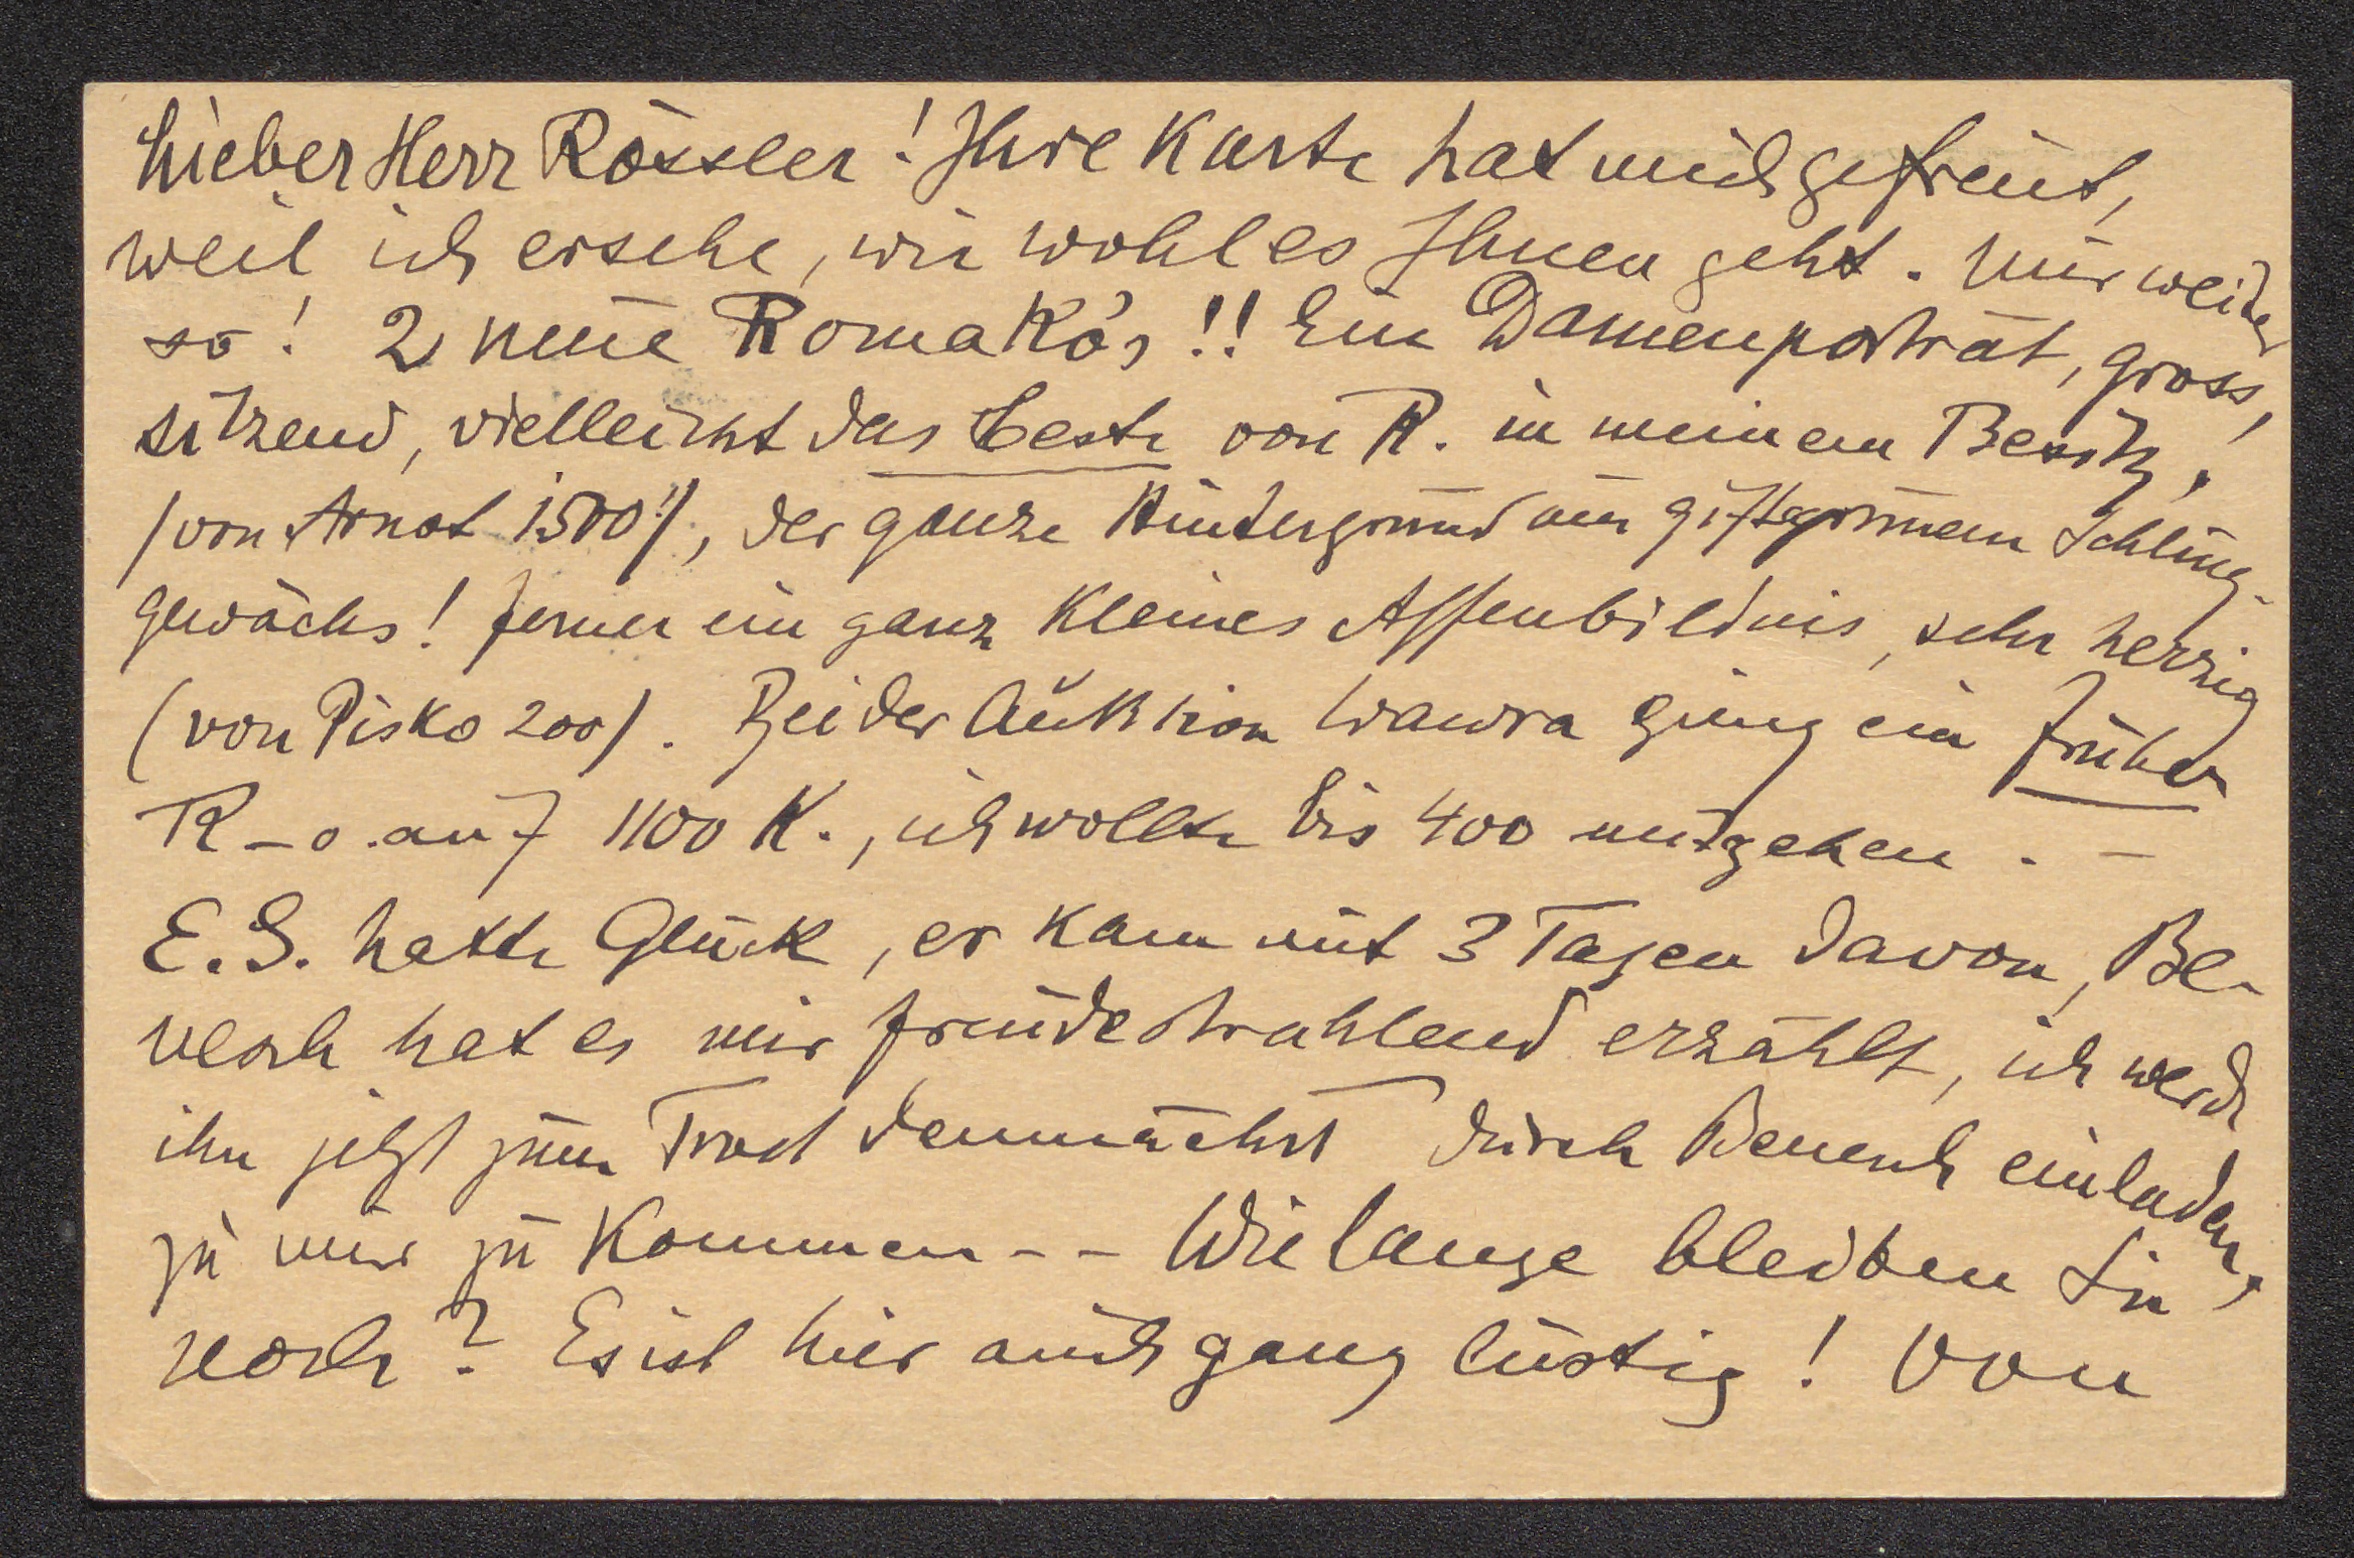 Lieber Herr Rössler! Ihre Karte hat mich gefreut,
weil ich ersehe, wie wohl es Ihnen geht. Nur weiter
so! 2 neue Romako's!! Ein Damenporträt, gross,
sitzend, vielleicht das beste von R. in meinem Besitz!
/von Arnot 1500!/, der ganze Hintergrund aus giftgrünem Schling-
gewächs! Ferner ein ganz kleines Affenbildnis, sehr herzig
(von Pisko 200). Bei der Auktion Wawra ging ein früher
R-o. auf 1100 K., ich wollte bis 400 mitgehen. –
E.S. hatte Glück, er kam mit 3 Tagen davon, Be-
nesch hat es mir freudestrahlend erzählt, ich werde
ihn jetzt zum Trost demnächst durch Benesch einladen,
zu mir zu kommen -- Wie lange bleiben Sie
noch? Es ist hier auch ganz lustig! Von